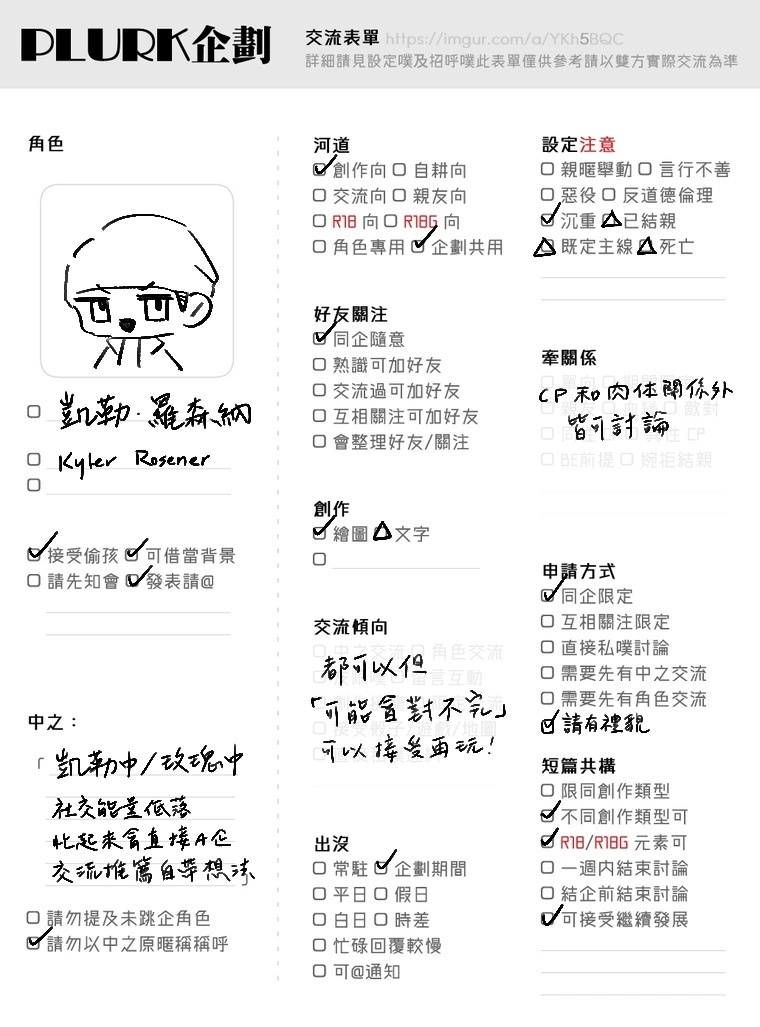 PLURK企劃
交流表單 https://imgur.com/a/YKh5BQC
詳細請見設定噗及招呼噗此表單僅供參考請以雙方實際交流為準
角色
凱勒·羅森納
Kyler Rosener
接受偷孩 可借當背景
請先知會 發表請@
中之：
「凱勒中/玫瑰中
社交能量低落
忙起來會直接A企
交流推薦自帶想法」
請勿提及未跳企角色
請勿以中之原暱稱稱呼
河道
創作向 自耕向
交流向 親友向
R18 向 R18G 向
角色專用 企劃共用
好友關注
同企隨意
熟識可加好友
交流過可加好友
互相關注可加好友
會整理好友/關注
創作
繪圖 文字
交流傾向
中之交流 角色交流
留言互動
都可以但
「可能會對不完」
可以接受再玩！
出沒
常駐 企劃期間
平日 假日
白日 時差
忙碌回覆較慢
可@通知
設定注意
親暱舉動 言行不善
惡役 反道德倫理
沉重 已結親
既定主線 死亡
牽關係
CP和肉体關係外
皆可討論
敵對
BE前提 婉拒結親
申請方式
同企限定
互相關注限定
直接私噗討論
需要先有中之交流
需要先有角色交流
請有禮貌
短篇共構
限同創作類型
不同創作類型可
R18/R18G 元素可
一週內結束討論
結企前結束討論
可接受繼續發展